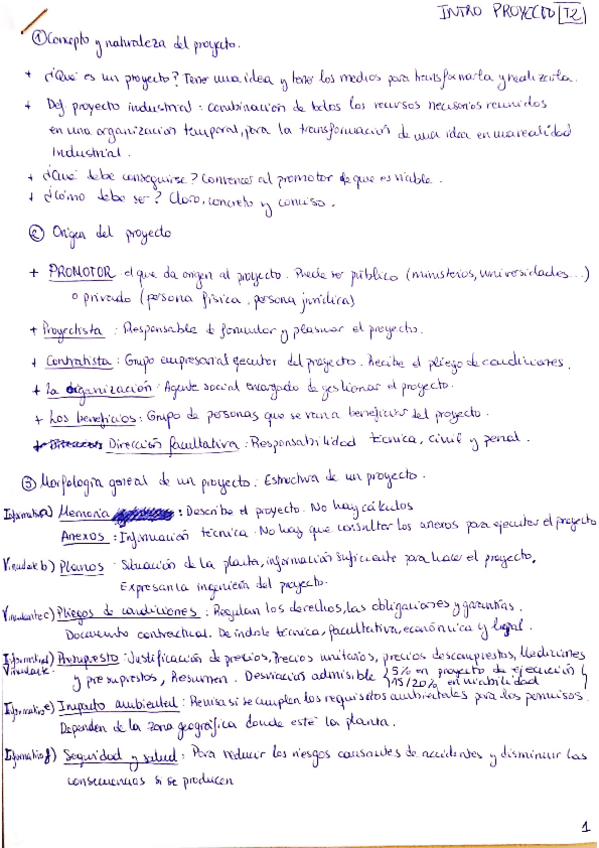 INTRO PROYECTO T2
① Concepto y naturaleza del proyecto.
+ ¿Qué es un proyecto? Tener una idea y tener los medios para transformarla y realizarla.
+ Def proyecto industrial: combinación de todos los recursos necesarios reunidos
en una organización temporal, para la transformación de una idea en una realidad
industrial.
+ ¿Qué debe conseguirse? Convencer al promotor de que es viable.
+ ¿Cómo debe ser? Claro, concreto y conciso.
② Origen del proyecto
+ PROMOTOR: el que da origen al proyecto. Puede ser público (ministerios, universidades...)
o privado (persona física, persona jurídica)
+ Proyectista: Responsable de formular y plasmar el proyecto.
+ Contratista: Grupo empresarial ejecutor del proyecto. Recibe el pliego de condiciones.
+ La organización: Agente social encargado de gestionar el proyecto.
+ Los beneficios: Grupo de personas que se van a beneficiar del proyecto.
+ Dirección facultativa: Responsabilidad técnica, civil y penal.
③ Morfología general de un proyecto: Estructura de un proyecto.
Informativo a) Memoria: Describe el proyecto. No hay cálculos
Anexos: Información técnica. No hay que consultar los anexos para ejecutar el proyecto
Vinculante b) Planos: Situación de la planta, información suficiente para hacer el proyecto.
Expresan la ingeniería del proyecto.
Vinculante c) Pliegos de condiciones: Regulan los derechos, las obligaciones y garantías.
Documento contractual. De índole técnica, facultativa, económica y legal.
Informativo d) Presupuesto: Justificación de precios, Precios unitarios, precios descompuestos, Mediciones
Vinculante y presupuestos, Resumen. Desviación admisible {5% en proyecto de ejecución
15/20% en viabilidad}
Informativo e) Impacto ambiental: Revisa si se cumplen los requisitos ambientales para los permisos.
Dependen de la zona geográfica donde esté la planta.
Informativo f) Seguridad y salud: Para reducir los riesgos causantes de accidentes y disminuir las
consecuencias si se producen
1